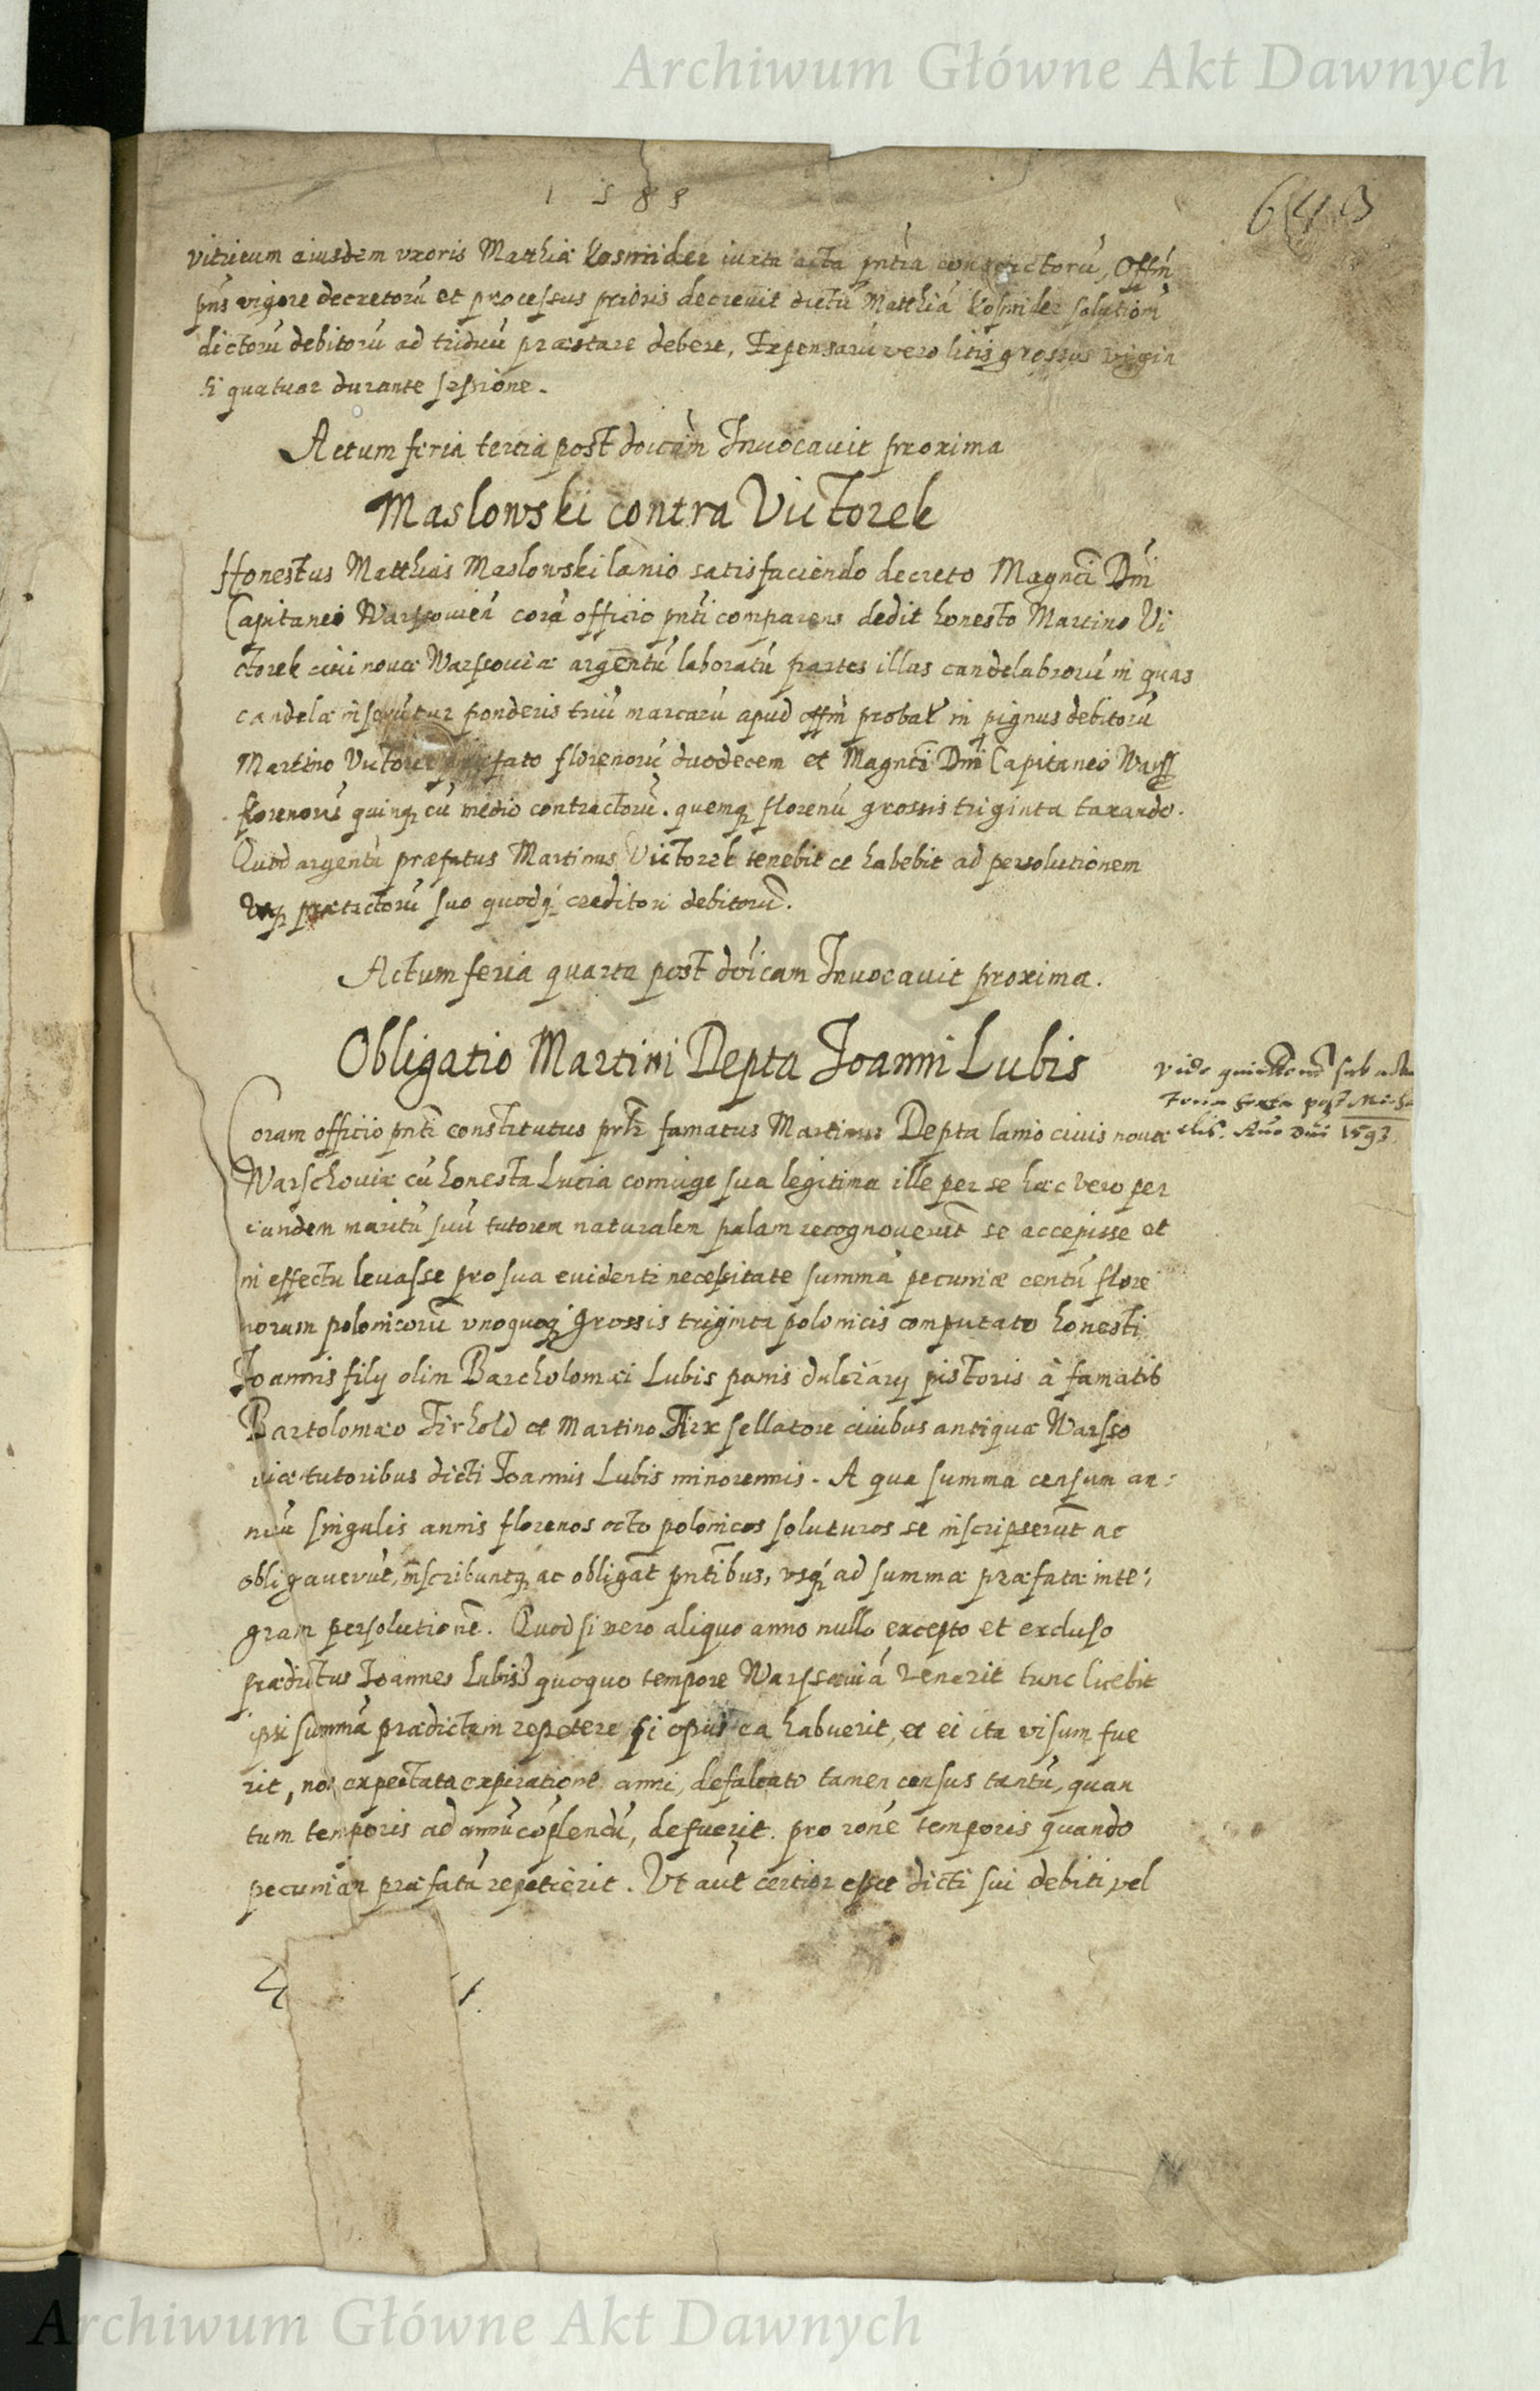 Archiwum Główne Akt Dawnych
1585
643
vitricum eiusdem vxoris Matthiæ Kosmider iuxta acta pntia contractorũ, Offm̃
pñs vigore decretorũ et processus prioris decreuit dictũ Matthiã Kosmider solutiom̃
dictorũ debitorũ ad triduũ præstare debere, Expensarũ vero litis grossus vigin
ti quatuor durante sessione.
Actum feria tertia post doicam̃ Inuocauit proxima
Maslowski contra Victorek
Honestus Matthias Maslowski lanio satisfaciendo decreto Magnci Dñi
Capitanei Warssouieñ corã officio pnti comparens dedit honesto Martino Vi
ctorek ciui nouæ Warssouiæ argentũ laboratũ partes illas candelabrorũ in quas
candelæ inserũtur ponderis triũ marcarũ apud offm̃ probat in pignus debitorũ
Martino Victorek præfato florenorũ duodecem et Magnci Dñi Capitanei Warss
florenorũ quinq; cũ medio contractorũ. quemq; florenũ grossis triginta taxando.
Quod argentũ præfatus Martinus Victorek tenebit et habebit ad persolutionem
vsq; prætactorũ suo quodq; creditori debitorũ.
Actum feria quarta post doicam Inuocauit proxima.
Obligatio Martini Depta Joanni Lubis
Vide quietatioñ sub actu
Feria sexta post Micha
elis. Año Dñi 1593.
Coram officio pnti constitutus prñs famatus Martinus Depta lanio ciuis nouæ
Warschouiæ cũ honesta Lucia coniuge sua legitima ille per se hæc vero per
eundem maritũ suũ tutorem naturalem palam recognouerũt se accepisse et
in effectu leuasse pro sua euidenti necessitate summã pecuniæ centũ flore
norum polonicorũ vnoquoq; grossis triginta polonicis computato honesti
Joannis filij olim Bartholomæi Lubis panis dulciarij pistoris à famatis
Bartolomæo Firhold et Martino Fix sellatore ciuibus antiquæ Warsso
uiæ tutoribus dicti Joannis Lubis minorennis. A qua summa censum an:
nuũ singulis annis florenos octo polonicos soluturos se inscripserũt ac
obligauerũt, inscribuntq; ac obligãt pntibus, vsq; ad summæ præfatæ inte:
gram persolutionẽ. Quod si vero aliquo anno nullo excepto et excluso
prædictus Joannes Lubis quoquo tempore Warssouiã venerit tunc licebit
ipsi summã prædictam repetere si opus ea habuerit, et ei ita visum fue
rit, noñ expectata expiratione anni, defalcato tamen census tantũ, quan
tum temporis ad annũ cõplendũ, defuerit. pro rone temporis quando
pecuniam præfatã repetierit. Vt aũt certior esset dicti sui debiti vel
Archiwum Główne Akt Dawnych